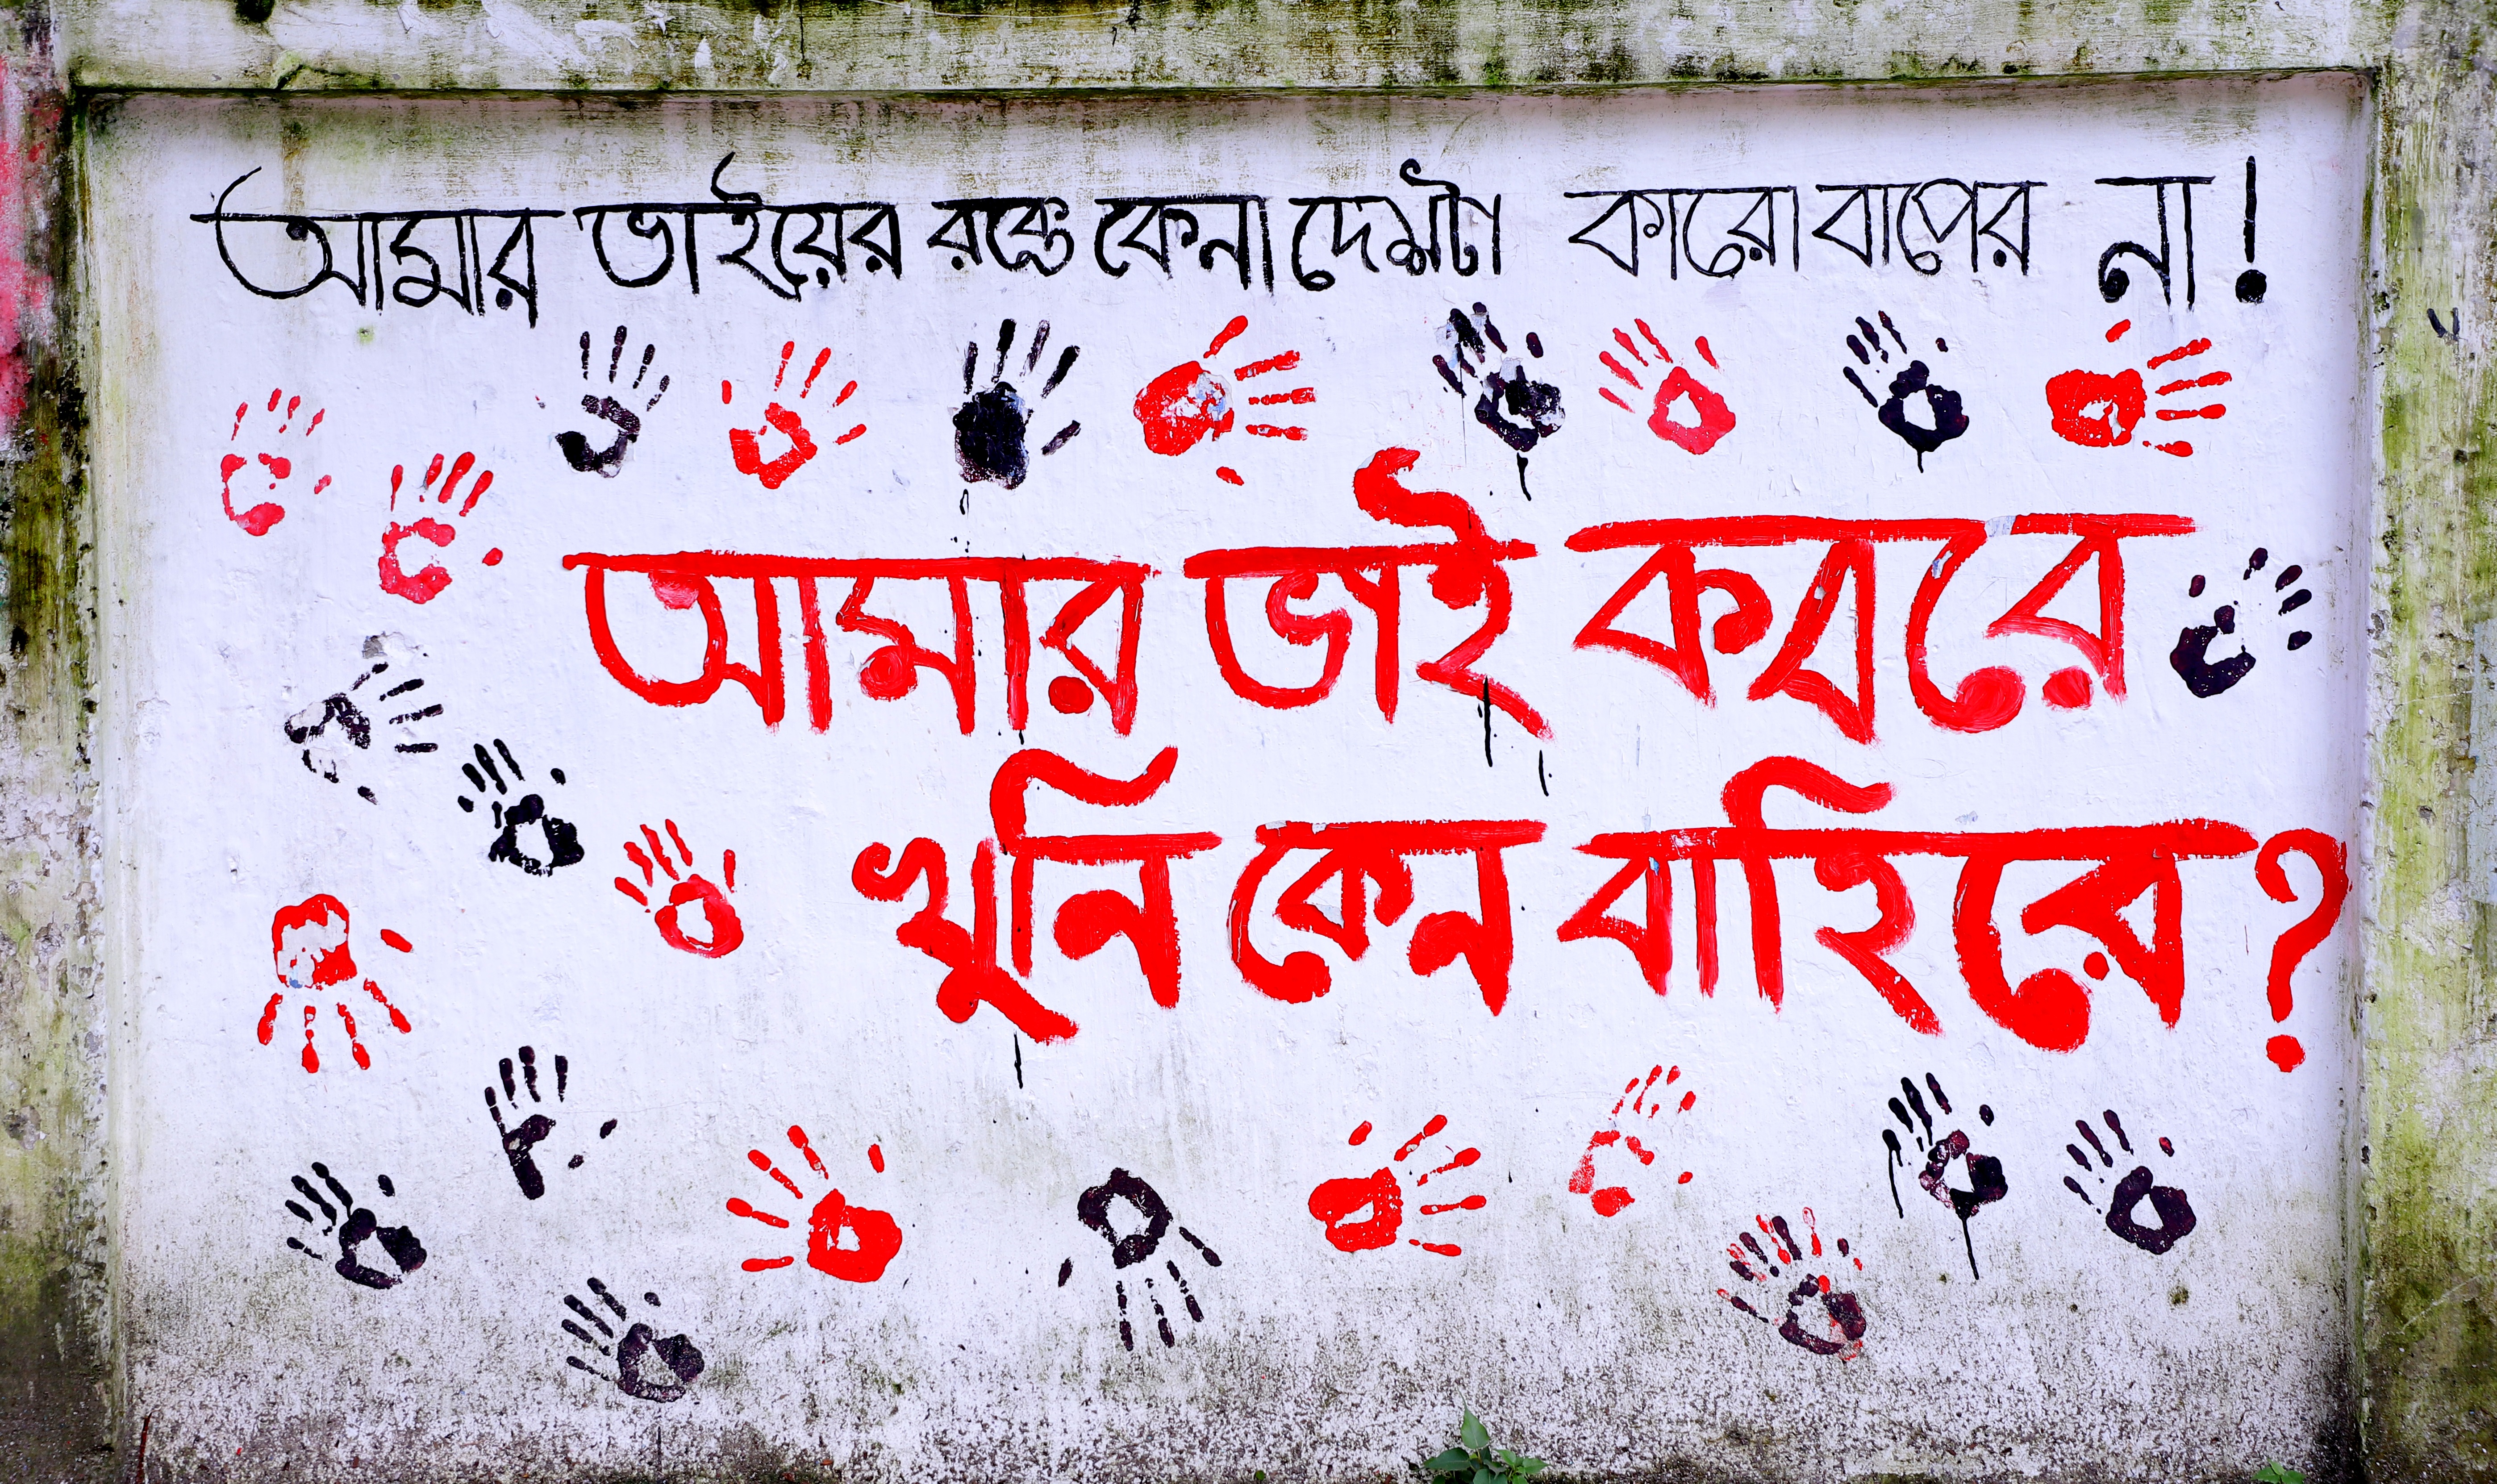 আমার ভাইয়ের রক্তে কেনা দেশটা কারো বাপের না!
আমার ভাই কবরে
খুনি কেন বাহিরে?